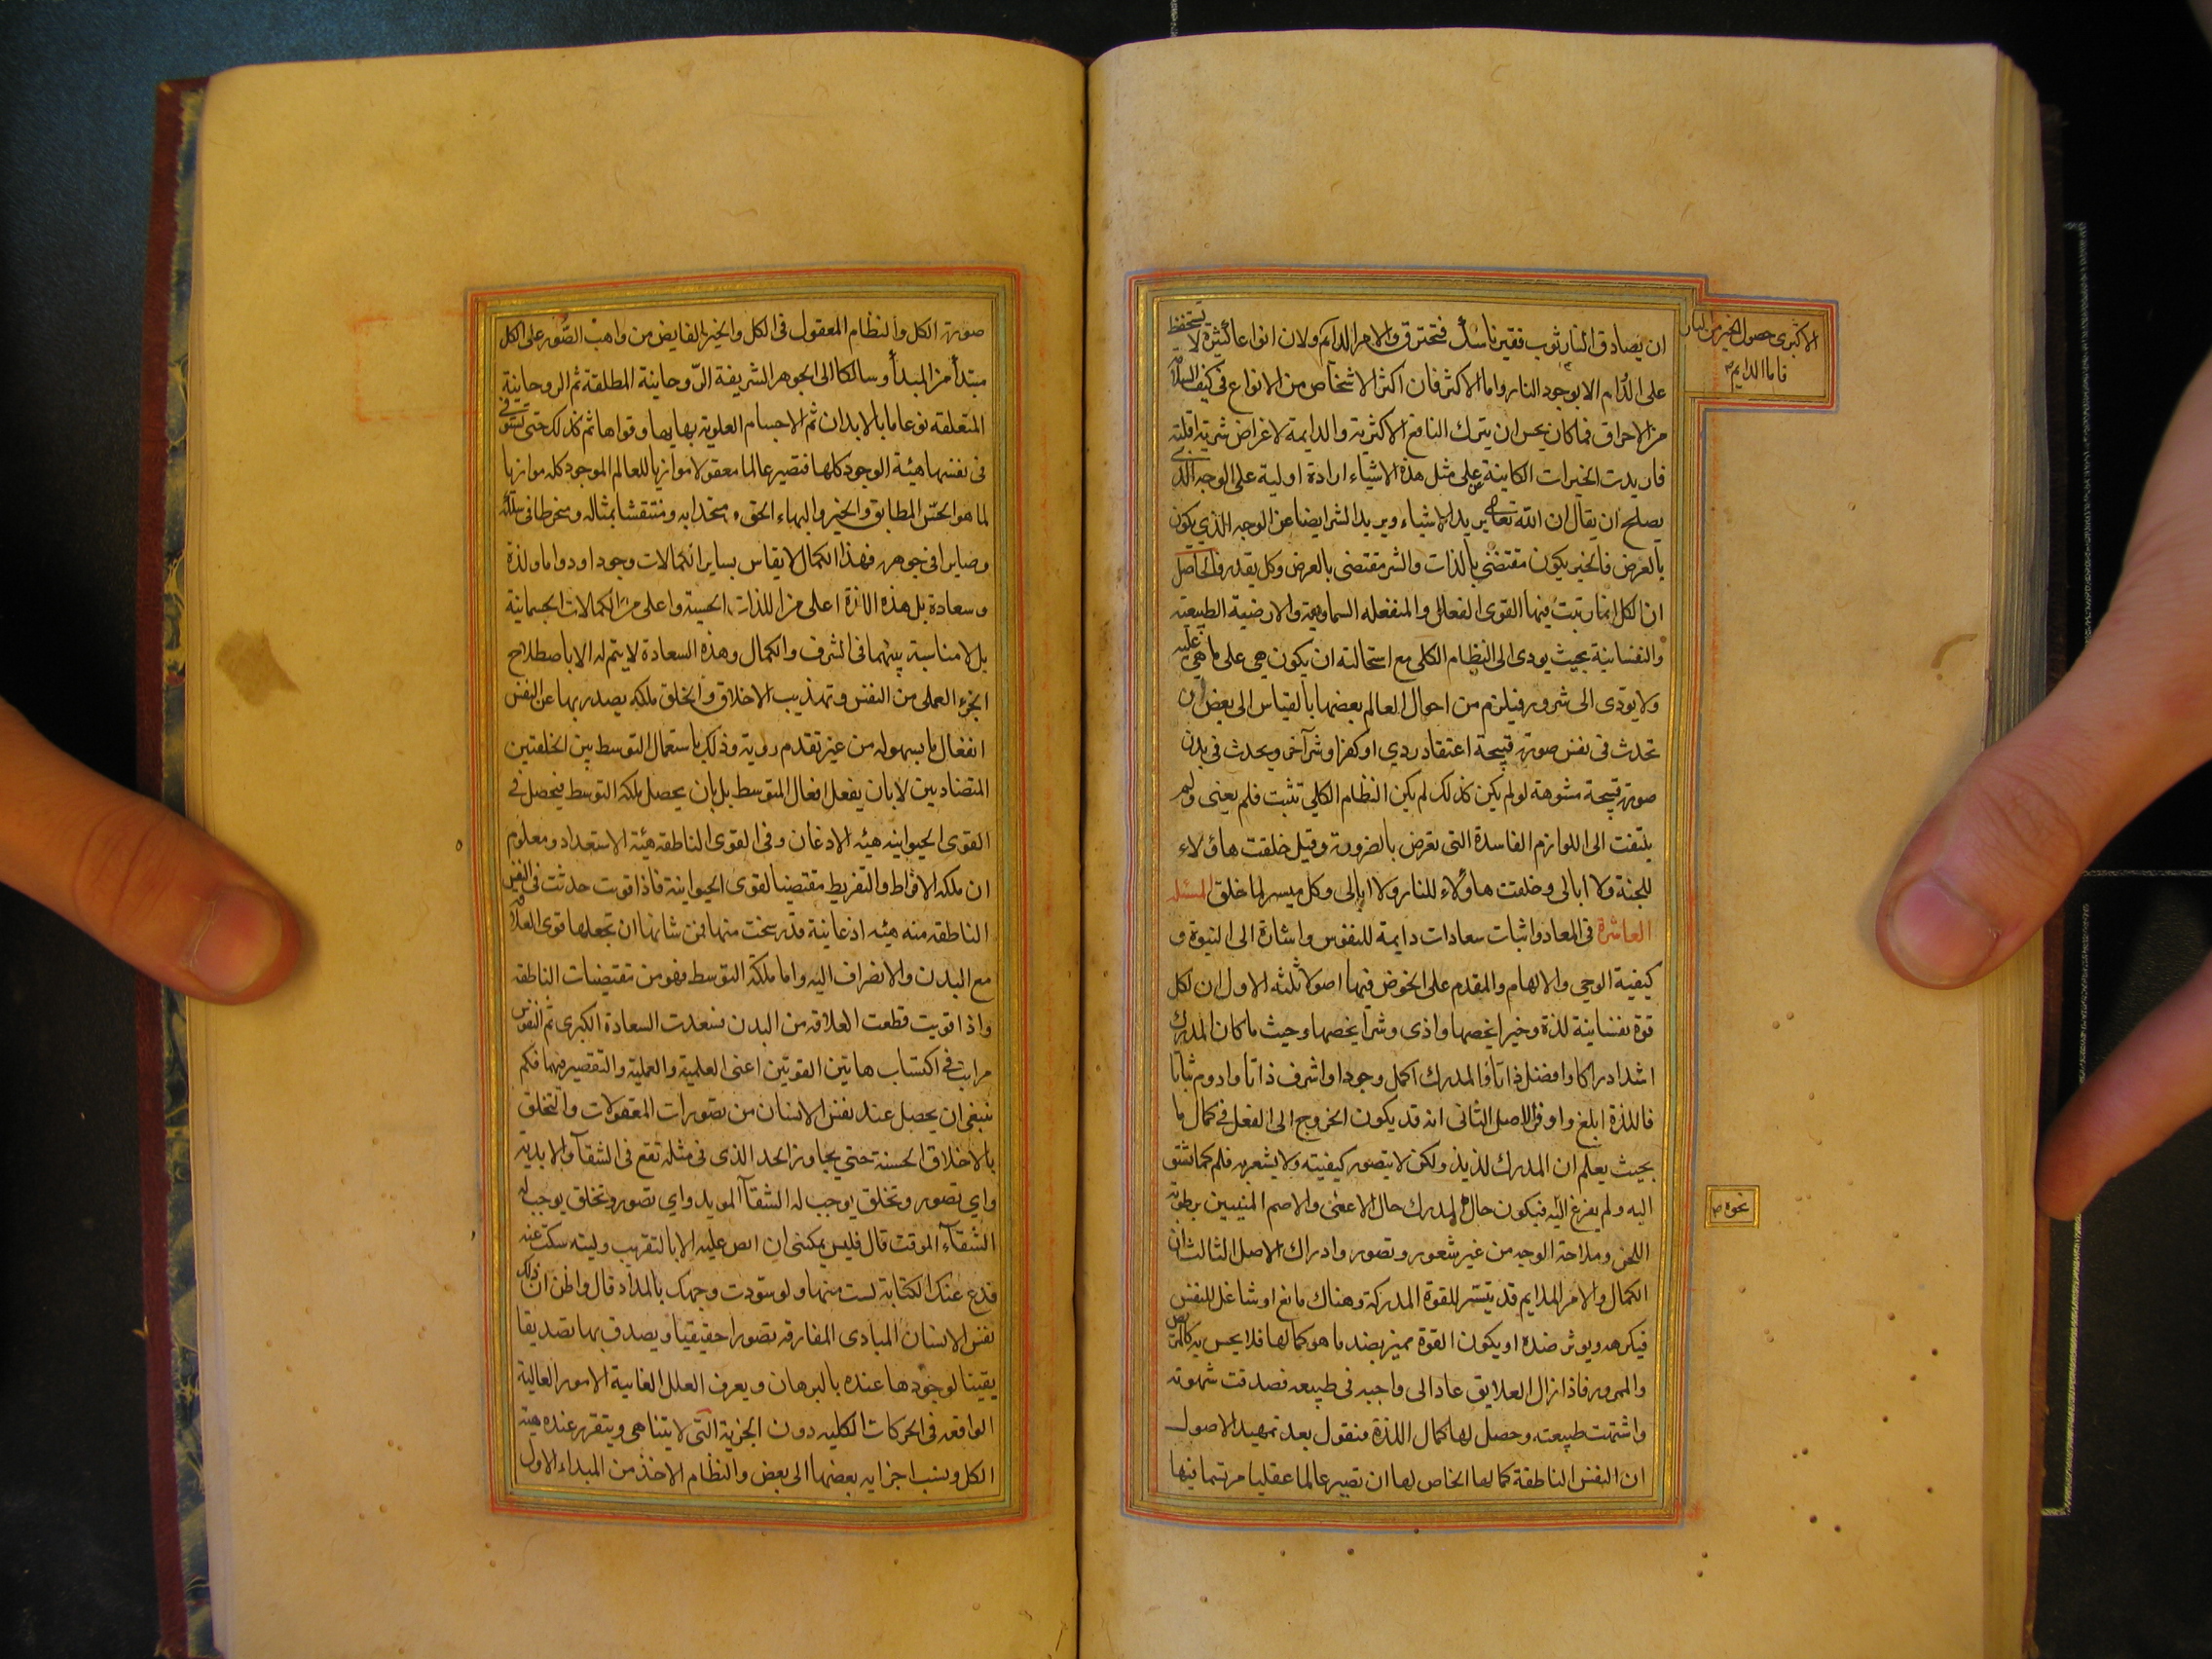 ان يصادق النار ثوب فقير ناسك فتحترق والامر الدايم ولان انواعا كثيرة لا تستحفظ
على الدوام الا بوجود النار واما الاكثر فان اكثر الاشخاص من الانواع فى كنف السلامة
من الاحراق فما كان يحسن ان يترك النافع الاكثرية والدايمة لاغراض شرية اقلية
فاريدت الخيرات الكاينة عن مثل هذه الاشياء ارادة اولية على الوجه الذى
يصلح ان يقال ان الله تعالى يريد الاشياء ويريد الشر ايضا عن الوجه الذي يكون
بالعرض فالخير يكون مقتضى بالذات والشر مقتضى بالعرض وكل بقدر والحاصل
ان الكل انما رتبت فيها القوى الفعالة والمنفعله السماوية والارضية الطبيعية
والنفسانية بحيث يودى الى النظام الكلى مع استحالته ان يكون هى على ما هى عليه
ولا يودى الى شرور فيلزم من احوال العالم بعضها بالقياس الى بعض ان
تحدث فى نفس صورة قبيحة اعتقاد ردي او كفر او شر آخر ويحدث فى بدن
صورة قبيحة مشوهة لو لم يكن كذلك لم يكن النظام الكلي تثبت فلم يعنى ولم
يلتفت الى اللوازم الفاسدة التى تعرض بالضرورة وقيل خلقت هاؤلاء
للجنة ولا ابالى وخلقت هاؤلاء للنار ولا ابالى وكل ميسر لما خلق المسئله
العاشرة فى المعاد واثبات سعادات دايمة للنفوس واشارة الى النبوة و
كيفية الوحى والالهام والمقدم على الخوض فيها اصولا ثلثه الاول ان لكل
قوة نفسانية لذة وخيرا يخصها واذى وشرا يخصها وحيث ما كان المدرك
اشد ادراكا وافضل ذاتا والمدرك اكمل وجودا واشرف ذاتا وادوم ثباتا
فاللذة ابلغ واوفر الاصل الثانى انه قد يكون الخروج الى الفعل فى كمال ما
بحيث يعلم ان المدرك لذيذ ولكن لا يتصور كيفيته ولا يشعر به فلم يشتق
اليه ولم يفزع اليه فيكون حال المدرك حال الاعمى والاصم المتيقنين برطوبة
اللحن وملاحة الوجه من غير شعور وتصور وادراك الاصل الثالث ان
الكمال والامر الملايم قد يتيسر للقوة المدركة وهناك مانع او شاغل للنفس
فيكرهه ويوثر ضده او يكون القوة مميز بضد ما هو كمالها فلا يحس به كالمريض
والممرور فاذا زال العلايق عاد الى واجبه فى طبيعه فصدقت شهوته
واشتهت طبيعته وحصل لها كمال اللذة فنقول بعد تمهيد الاصول
ان النفس الناطقة كمالها الخاص لها ان تصير عالما عقليا مرتسما فيها
الاكثرى حصول الخير من النار
فاما الدايم
نحوه
صورة الكل والنظام المعقول فى الكل والخير الفايض من واهب الصور على الكل
مبتدأ من المبدأ وسالكا الى الجوهر الشريفة الروحانية المطلقة ثم الروحانية
المتعلقه نوعا ما بالابدان ثم الاجسام العلوية بهيأيها وقواها ثم كذلك حتى تستوفى
فى نفسها هيئة الوجود كلها فتصير عالما معقولا موازيا للعالم الموجود كله موازيا
لما هو الحسن المطابق والخير والبهاء الحق متحدا به ومنتقشا بمثاله ومنخرطا فى سلكه
وصايرا فى جوهره فهذا الكمال لا يقاس بساير الكمالات وجودا ودواما ولذة
وسعادة بل هذه اللذة اعلى من اللذات الحسية واعلى من الكمالات الجسمانية
بل لا مناسبة بينهما فى الشرف والكمال وهذه السعادة لا يتم له الا باصطلاح
الجزء العملى من النفس وتهذيب الاخلاق والخلق ملكه يصدر بها عن النفس
افعال ما بسهوله من غير تقدم روية وذلك باستعمال التوسط بين الخلقتين
المتضادين لا بان يفعل افعال المتوسط بل بان يحصل ملكة التوسط فيحصل فى
القوى الحيوانيه هيئه الاذعان وفى القوى الناطقه هيئة الاستعداد ومعلوم
ان ملكه الافراط والتفريط مقتضيا القوى الحيوانية فاذا قويت حدثت فى النفس
الناطقه منه هيئه اذعانية قد رسخت منها فمن شانها ان تجعلها قوى العلاقة
مع البدن والانصراف اليه واما ملكة التوسط فهو من مقتضيات الناطقه
واذا قويت قطعت العلاقه من البدن فسعدت السعادة الكبرى ثم للنفوس
مراتب فى اكتساب هاتين القوتين اعنى العلمية والعملية والتقصير فيهما فكم
ينبغى ان يحصل عند نفس الانسان من تصورات المعقولات والتخلق
بالاخلاق الحسنة حتى يجاوز الحد الذى فى مثله تقع فى الشقآء الابدية
واي تصور وتخلق يوجب له الشقآء المويد واي تصور وتخلق يوجب له
الشقآء الموقت قال فليس يمكننى ان انص عليه الا بالتقريب وليته سكت عنه
فدع عنك الكتابة لست منها ولو سودت وجهك بالمداد قال واظن ان ذلك
نفس الانسان المبادى المفارقه تصورا حقيقيا ويصدق بها تصديقا
يقينا لوجودها عنده بالبرهان ويعرف العلل الغائية الامور العالية
الواقعه فى الحركات الكليه دون الجزية التى لا يتناهى ويتقرر عنده هية
الكل ونسب اجزايه بعضها الى بعض والنظام الاخذ من المبداء الاول